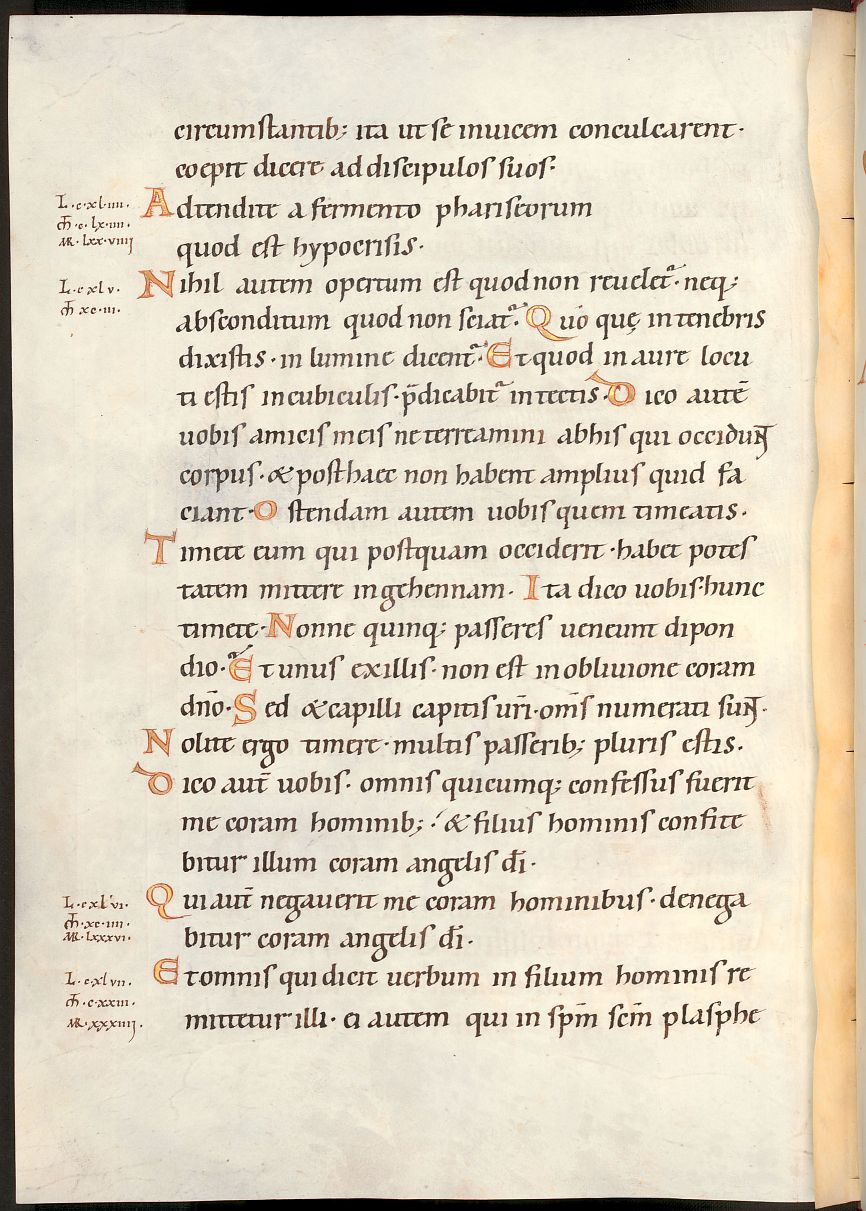 circumstantib; ita ut se inuicem conculcarent·
coepit dicere ad discipulos suos·
L·c·xl·iiii·
m̅·c·lx·iiii·
MR·lxx·viiii
Adtendite a fermento phariseorum
quod est hypocrisis·
L·c·xl v·
m̅·xc·iii·
Nihil autem opertum est quod non reuelet᷑·neq;
absconditum quod non sciat᷑·Quo̅ quę in tenebris
dixistis·in lumine dicent᷑·Et quod in aure locu
ti estis in cubiculis·p̅dicabit᷑ in tectis·Dico aute̅
uobis amicis meis ne terreamini ab his qui occidunt
corpus·& post haec non habent amplius quid fa
ciant·Ostendam autem uobis quem timeatis·
Timete eum qui postquam occiderit·habet potes
tatem mittere in gehennam·Ita dico uobis·hunc
timete·Nonne quinq; passeres ueneunt dipon
dio·Et unus ex illis·non est in obliuione coram
dn̅o·Sed & capilli capitis ur̅i·om̅s numerati sunt·
Nolite ergo timere·multis passerib; pluris estis·
Dico aut̅ uobis·omnis quicumq; confessus fuerit
me coram hominib;·& filius hominis confite
bitur illum coram angelis d̅i·
L·c·xl·vi·
m̅·xc·iiii·
MR·lxxxvi·
Qui aut̅ negauerit me coram hominibus·denega
bitur coram angelis d̅i·
L·c·xl vii·
m̅·c·xxiii·
MR·xxxiiii·
Et omnis qui dicit uerbum in filium hominis re
mittetur illi·ei autem qui in sp̅m sc̅m plasphe